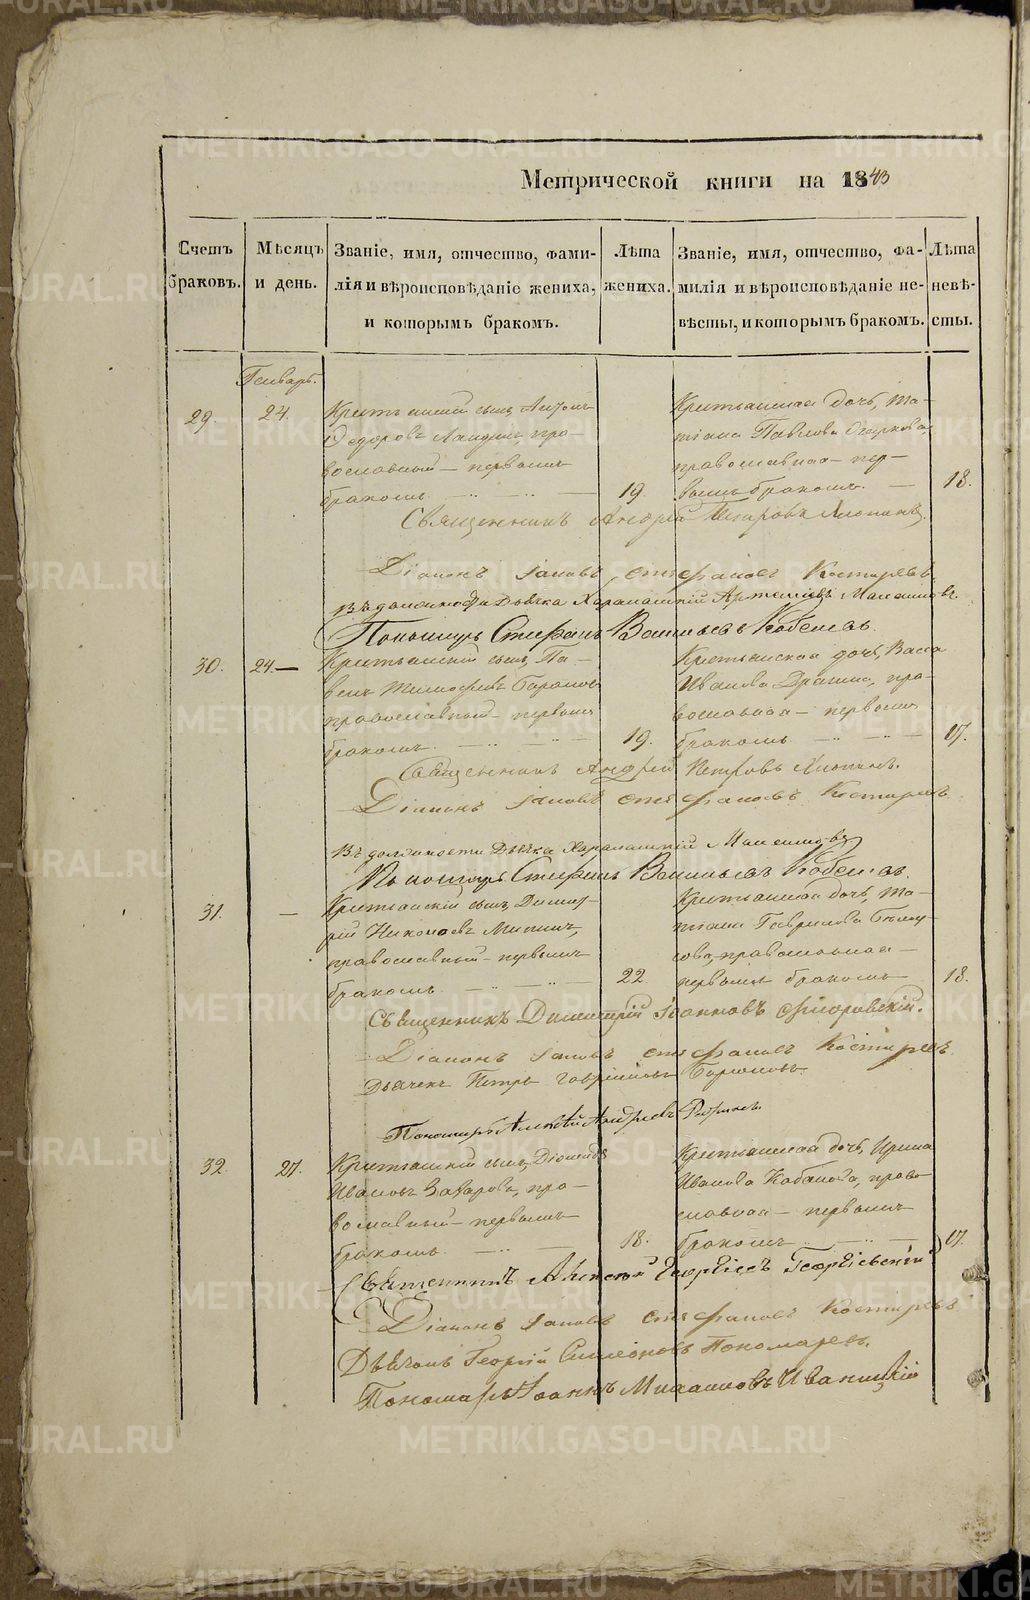 Метрической книги на 1843
Счетъ браковъ.
Мѣсяцъ и день.
Званіе, имя, отчество, фами-
лія и вѣроисповѣданіе жениха,
и которымъ бракомъ.
Лѣта жениха.
Званіе, имя, отчество, фа-
милія и вѣроисповѣданіе не-
вѣсты, и которымъ бракомъ.
Лѣта невѣ-
сты.
Генварь.
29. 24.
Крестьянскій сынъ, Антонъ
Ѳедоровъ
православный – первымъ
бракомъ
19.
Крестьянская дочь, Та-
тіана Павлова
православная – пер-
вымъ бракомъ.
18.
Священникъ Андрей Петровъ
Діаконъ Іаковъ Стефановъ Костыревъ
Въ должности Дьячка Харалампій
Пономарь Стефанъ Васильевъ Кобелевъ.
30. 24.
Крестьянскій сынъ, Па-
велъ Тимофеевъ Барановъ
православный – первымъ
бракомъ.
19.
Крестьянская дочь, Васса
Иванова, пра-
вославная – первымъ
бракомъ
17.
Священникъ Андрей Петровъ
Діаконъ Іаковъ Стефановъ Костыревъ
Въ должности Дьячка Харалампій
Пономарь Стефанъ Васильевъ Кобелевъ.
31. –
Крестьянскій сынъ, Димит-
рій Николаевъ
православный – первымъ
бракомъ.
22.
Крестьянская дочь, Та-
тіана Гаврилова
православная –
первымъ бракомъ
18.
Священникъ Димитрій Іоанновъ
Діаконъ Іаковъ Стефановъ Костыревъ.
Дьячекъ Петръ Гавріиловъ
Пономарь Алексѣй Андреевъ
32. 27.
Крестьянскій сынъ, Діомидъ
Ивановъ Захаровъ, пра-
вославный – первымъ
бракомъ.
18.
Крестьянская дочь, Ирина
Иванова Кабанова, право-
славная – первымъ
бракомъ
17.
Священникъ Алексѣй Георгіевъ Георгіевскій
Діаконъ Іаковъ Стефановъ Костыревъ
Дьячокъ Георгій Симеоновъ Пономаревъ.
Пономарь Іоаннъ Михаиловъ Иваницкій
METRIKI.GASO-URAL.RU